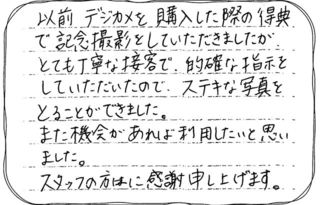 以前 デジカメを 購入した際の得典
で記念撮影をしていただきましたが、
とても丁寧な接客で、的確な指示を
していただいたので、ステキな写真を
とることができました。
また機会があれば利用したいと思い
ました。
スタッフの方々に感謝申し上げます。